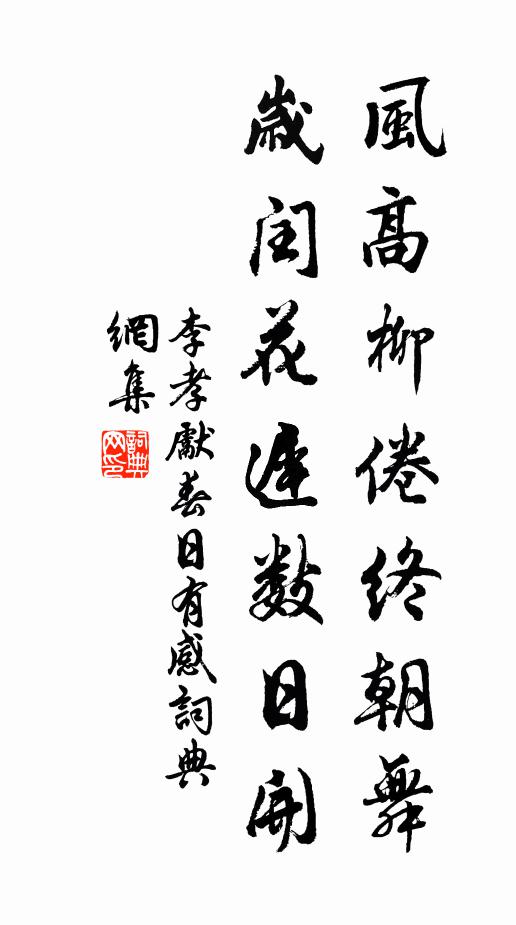 風高柳倦終朝舞
歲閏花遲数日開
李孝獻春日有感詞典
網集
詞典
网印